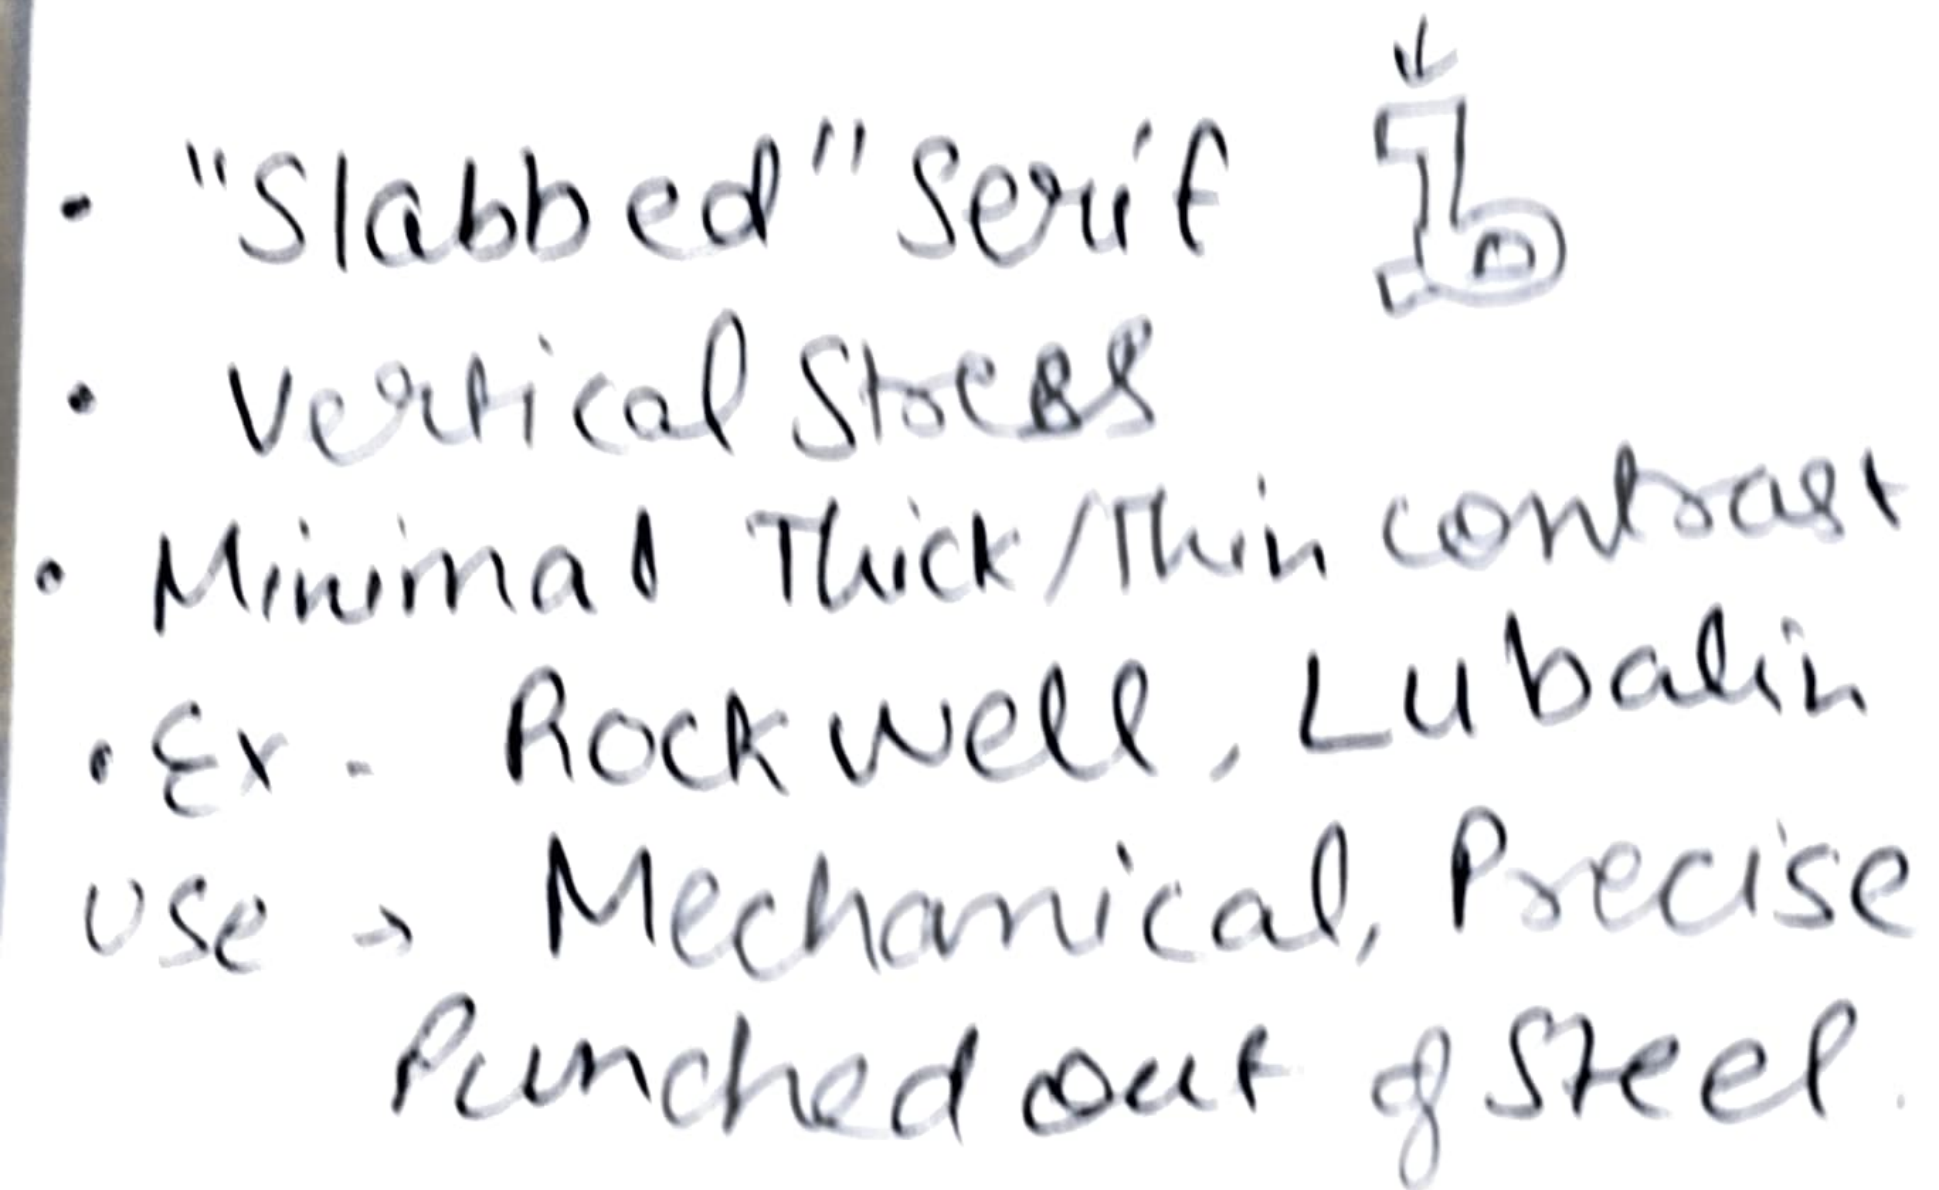 • "Slabbed" Serif b
• Vertical Stress
• Minimal Thick/Thin contrast
• Ex - Rockwell, Lubalin
Use → Mechanical, Precise
Punched out of Steel.